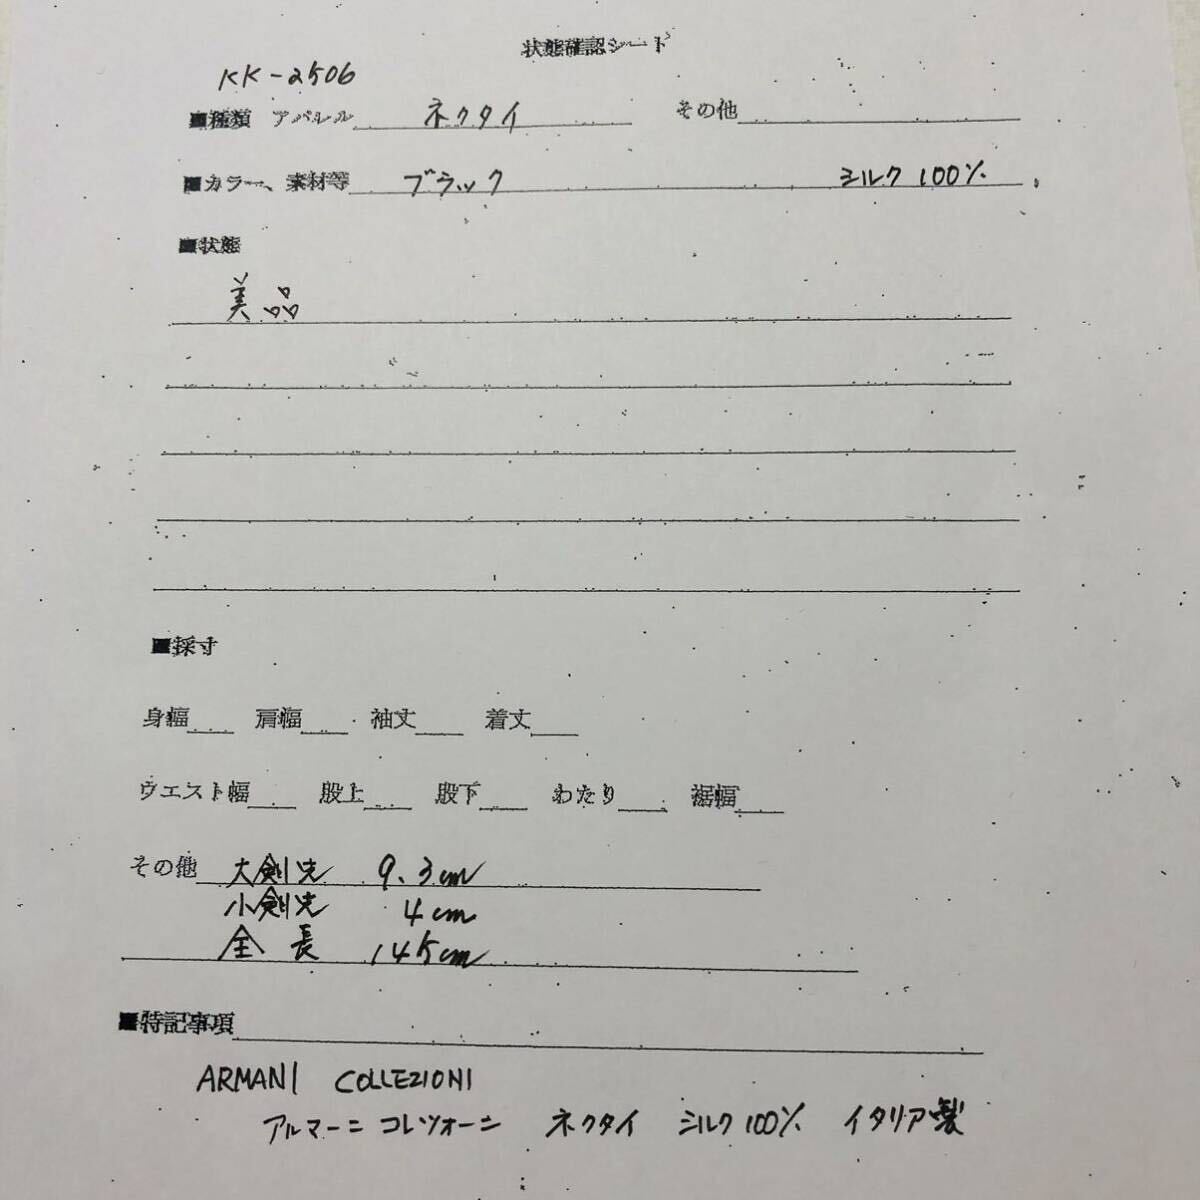 状態確認シート
KK-2506
■種類 アパレル ネクタイ その他
■カラー、素材等 ブラック シルク100%
■状態
美品
■採寸
身幅 肩幅 袖丈 着丈
ウエスト幅 股上 股下 わたり 裾幅
その他 大剣先 9.3cm
小剣先 4cm
全長 145cm
■特記事項
ARMANI COLLEZIONI
アルマーニ コレツォーニ ネクタイ シルク100% イタリア製